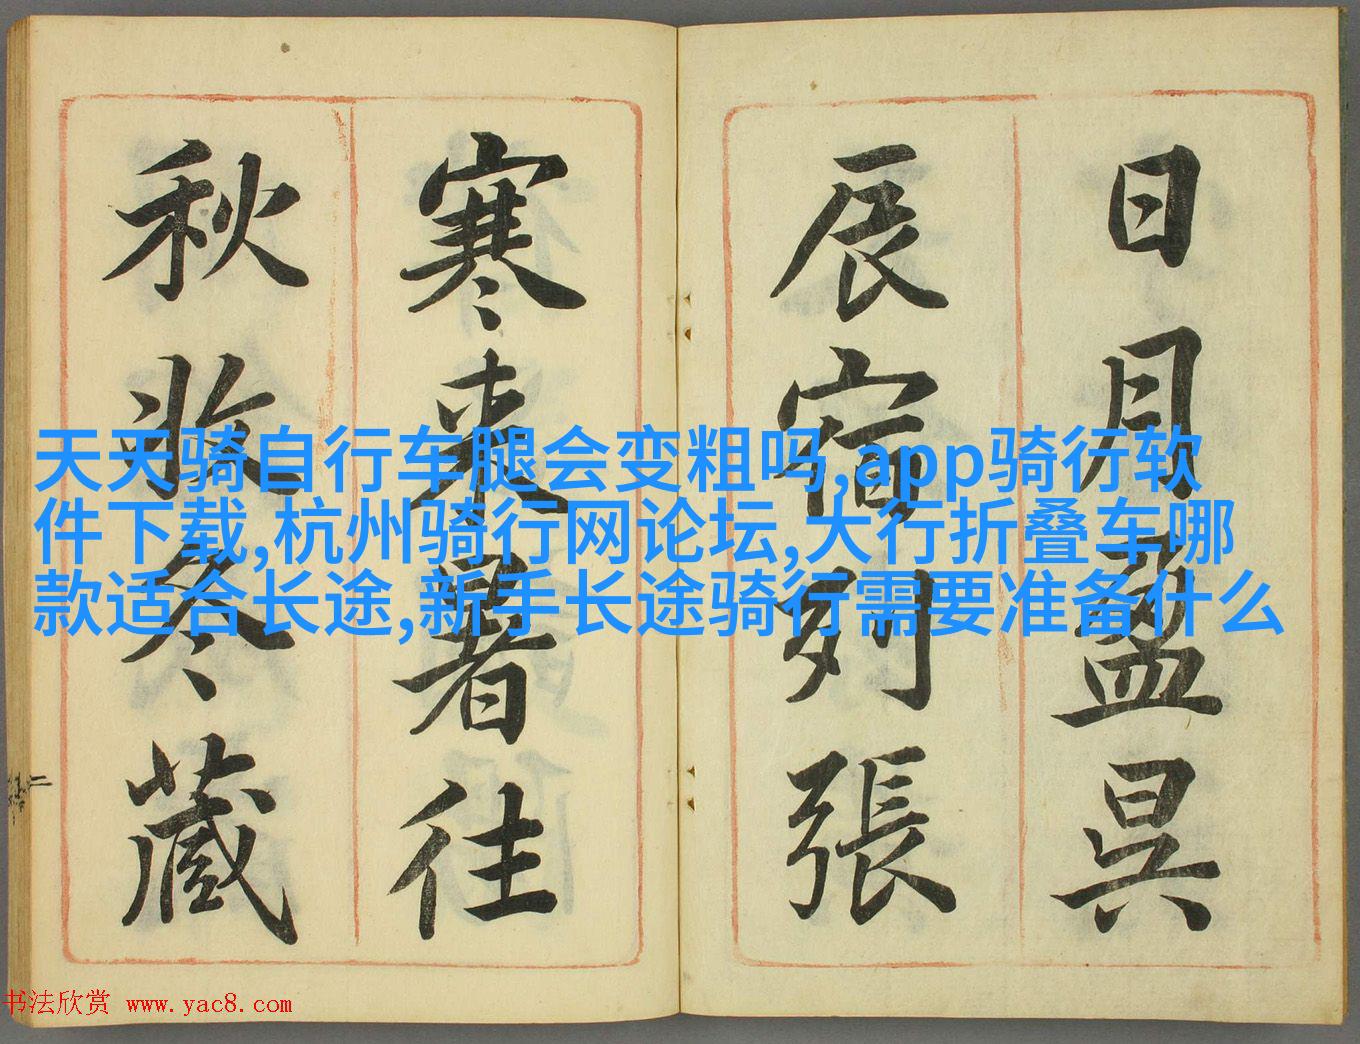 日月盈昃
辰宿列張
寒来暑往
秋收冬藏
天天骑自行车腿会变粗吗,app骑行软
件下载,杭州骑行网论坛,大行折叠车哪
款适合长途,新手长途骑行需要准备什么
书法欣赏 www.yac8.com